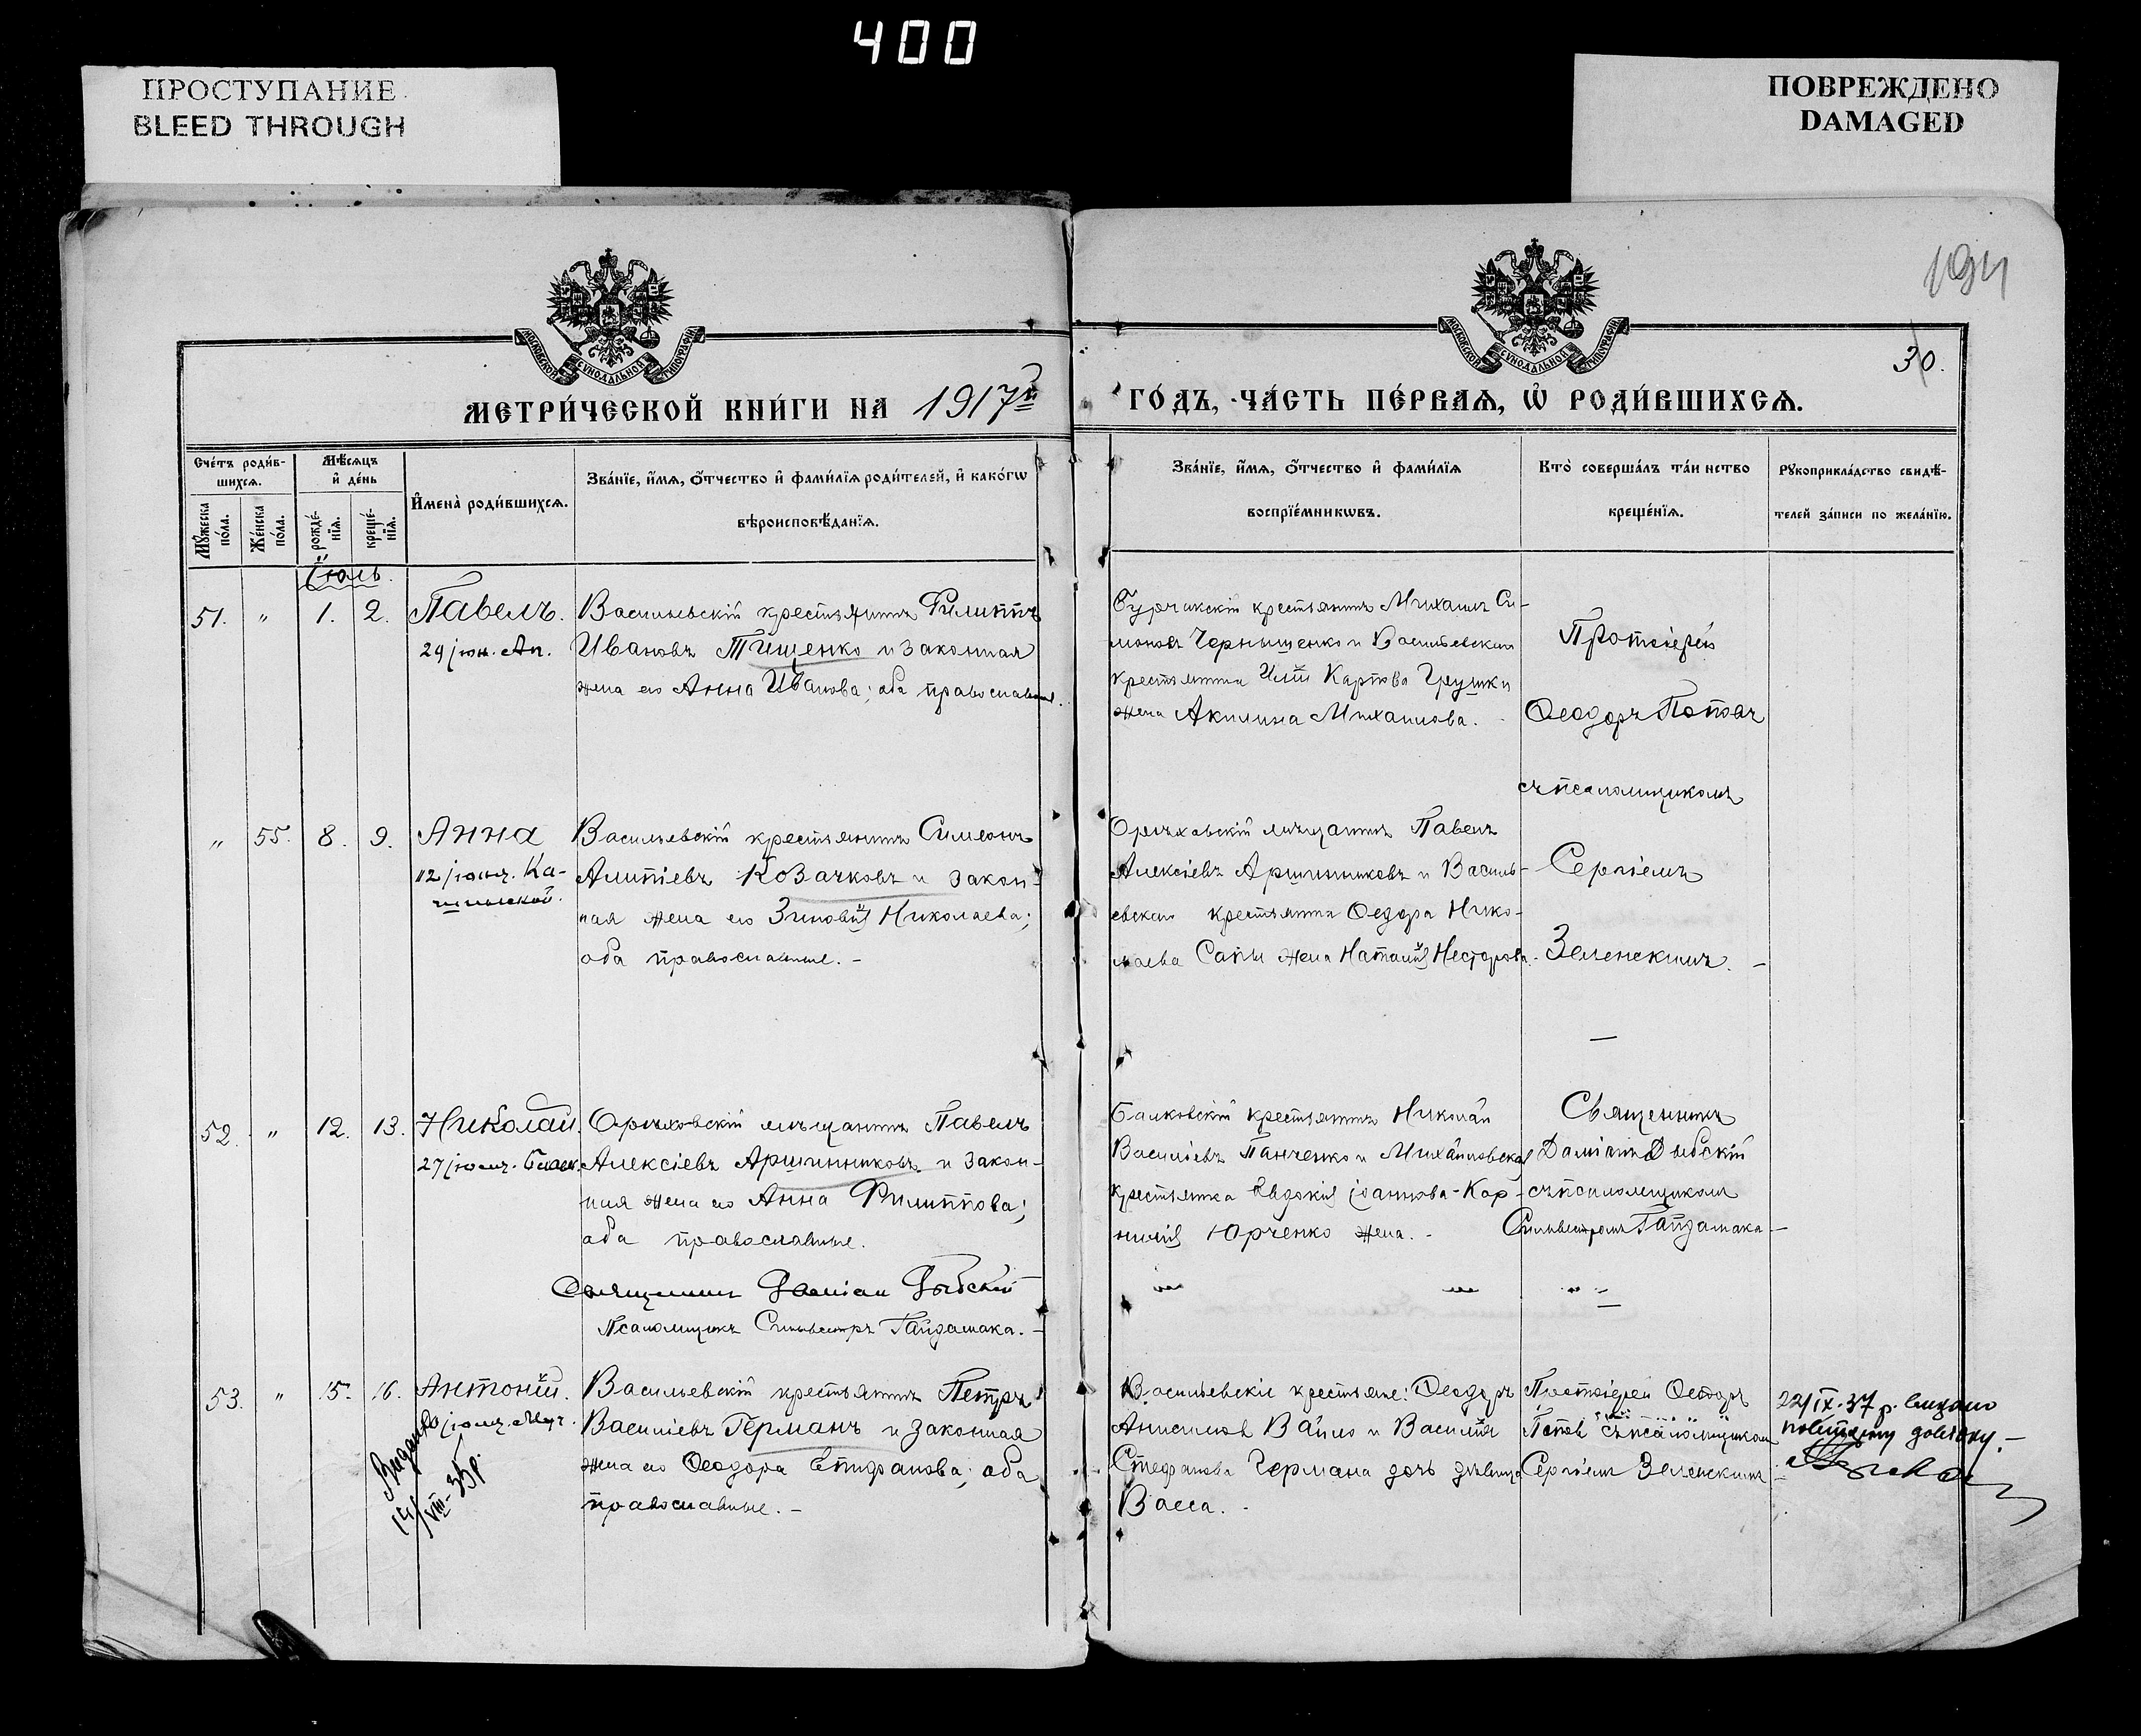 400
ПРОСТУПАНИЕ
BLEED THROUGH
ПОВРЕЖДЕНО
DAMAGED
194
30.
МОСКОВСКОЙ СѴНОДАЛЬНОЙ ТИПОГРАФІИ
МОСКОВСКОЙ СѴНОДАЛЬНОЙ ТИПОГРАФІИ
МЕТРИ́ЧЕСКОЙ КНИ́ГИ НА 1917й
ГО́ДЪ, ЧА́СТЬ ПЕ́РВАѦ, Ѡ҆ РОДИ́ВШИХСѦ.
Сче́тъ роди́в-
шихсѧ.
Мѣ́сѧцъ
и҆ де́нь
Мꙋ́жеска по́ла.
Же́нска по́ла.
рожде́-
нїѧ.
креще́-
нїѧ.
И҆мена̀ роди́вшихсѧ.
Зва́нїе, и҆́мѧ, ѻ҆́тчество и҆ фами́лїѧ роди́телей, и҆ како́гѡ
вѣроисповѣ́данїѧ.
Зва́нїе, и҆́мѧ, ѻ҆́тчество и҆ фами́лїѧ
воспрїе́мникѡвъ.
Кто̀ соверша́лъ та́инство
креще́нїѧ.
Рꙋкоприкла́дство свидѣ́-
телей за́писи по жела́нїю.
Іюль.
51. " 1. 2. Павелъ.
29 іюн. Ап.
Васильевскій крестьянинъ Филиппъ
Ивановъ Тищенко и законная
жена его Анна Иванова; оба православные.
Бурчакскій крестьянинъ Михаилъ Си-
моновъ Чернышенко и Васильевская
крестьянина Карпова Грушки
жена Акилина Михаилова.
Протоіерей
Ѳеодоръ Поповъ
съ псаломщикомъ
Сергіемъ
Зеленскимъ. -
" 55. 8. 9. Анна
12 іюн. Ка-
Васильевскій крестьянинъ Симеонъ
Алипіевъ Козачковъ и закон-
ная жена его Зиновія Николаева;
оба православные. -
Орѣховскій мѣщанинъ Павелъ
Алексіевъ Аршинниковъ и Василь-
евскаго крестьянина Ѳедора Нико-
лаева Сапы жена Наталія Несторова.
52. " 12. 13. Николай.
27 іюл.
Орѣховскій мѣщанинъ Павелъ
Алексіевъ Аршинниковъ и закон-
ная жена его Анна Филиппова;
оба православные.
Священникъ Даміанъ Дыбскій
Псаломщикъ Сильвестръ Гайдамака. -
Балковскій крестьянинъ Николай
Васильевъ Панченко и Михайловская
крестьянка Евдокія Іоаннова-Кор-
нилія Юрченко жена. -
Священникъ
Даміанъ Дыбскій
съ псаломщикомъ
Сильвестромъ Гайдамака -
53. " 15. 16. Антоній.
10 іюл. Муч.
Видано
14/VIII-35 р.
Васильевскій крестьянинъ Петръ
Василіевъ Германъ и законная
жена его Ѳеодора Епифанова; оба
православные. -
Васильевскіе крестьяне: Ѳеодоръ
Анисимовъ Вайло и Василія
Стефанова Германа дочь дѣвица
Васса. -
Протоіерей Ѳеодоръ
Поповъ съ псаломщикомъ
Сергіемъ Зеленскимъ -
22/IX-37 р. видано
повторну довідку. -